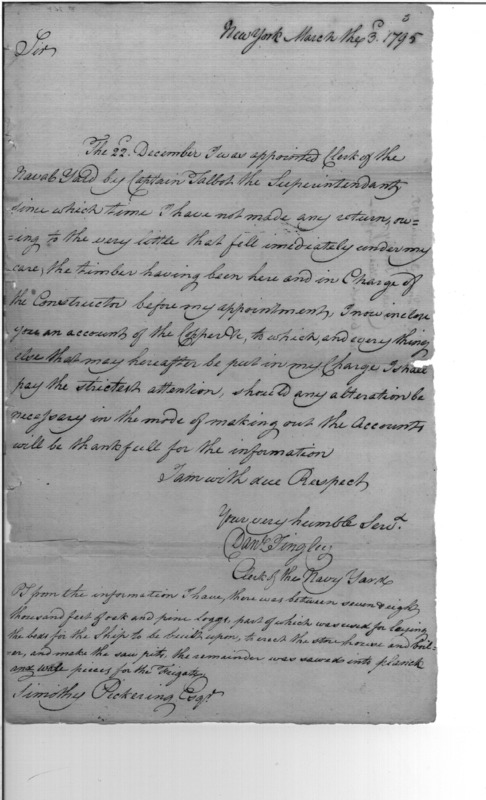 New York March the 3d. 1795
Sir
The 22d. December I was appointed Clerk of the
Naval Yard by Captain Talbot the Superintendant,
since which time I have not made any return, ow=
=ing to the very little that fell imediately under my
care, the timber having been here and in Charge of
the Constructor before my appointment, I now inclose
you an account of the Copper &c, to which, and every thing
else that may hereafter be put in my Charge I shall
pay the strictest attention, should any alteration be
necessary in the mode of making out the Accounts
will be thankfull for the information
I am with due Respect
Your very humble Servt.
Danl. Tingley
Clerk of the Navy Yard
PS from the information I have, there was between seven & eight
thousand feet of oak and pine loggs, part of which was used for laying
the base for the Ship to be built upon, to erect the store house and
and make the saw pits, the remainder was sawed into plank
and wale pieces for the Frigate
Timothy Pickering Esqr.